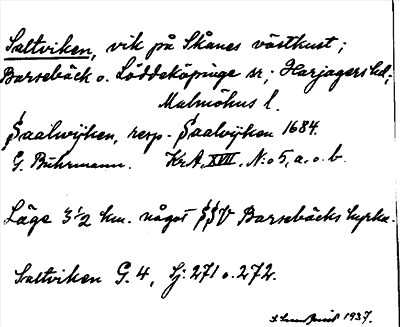 Saltviken, vik på Skånes västkust;
Barsebäck o. Löddeköpinge sr; Harjagers hd;
Malmöhus l.
Saalwijken, resp. Saalvijken 1684.
G. Buhrmann. KrA, XVII, N:o 5, a. o. b.
Läge 3½ km. något SSV Barsebäcks kyrka.
Saltviken G. 4, Sj: 271 o. 272.
1937.